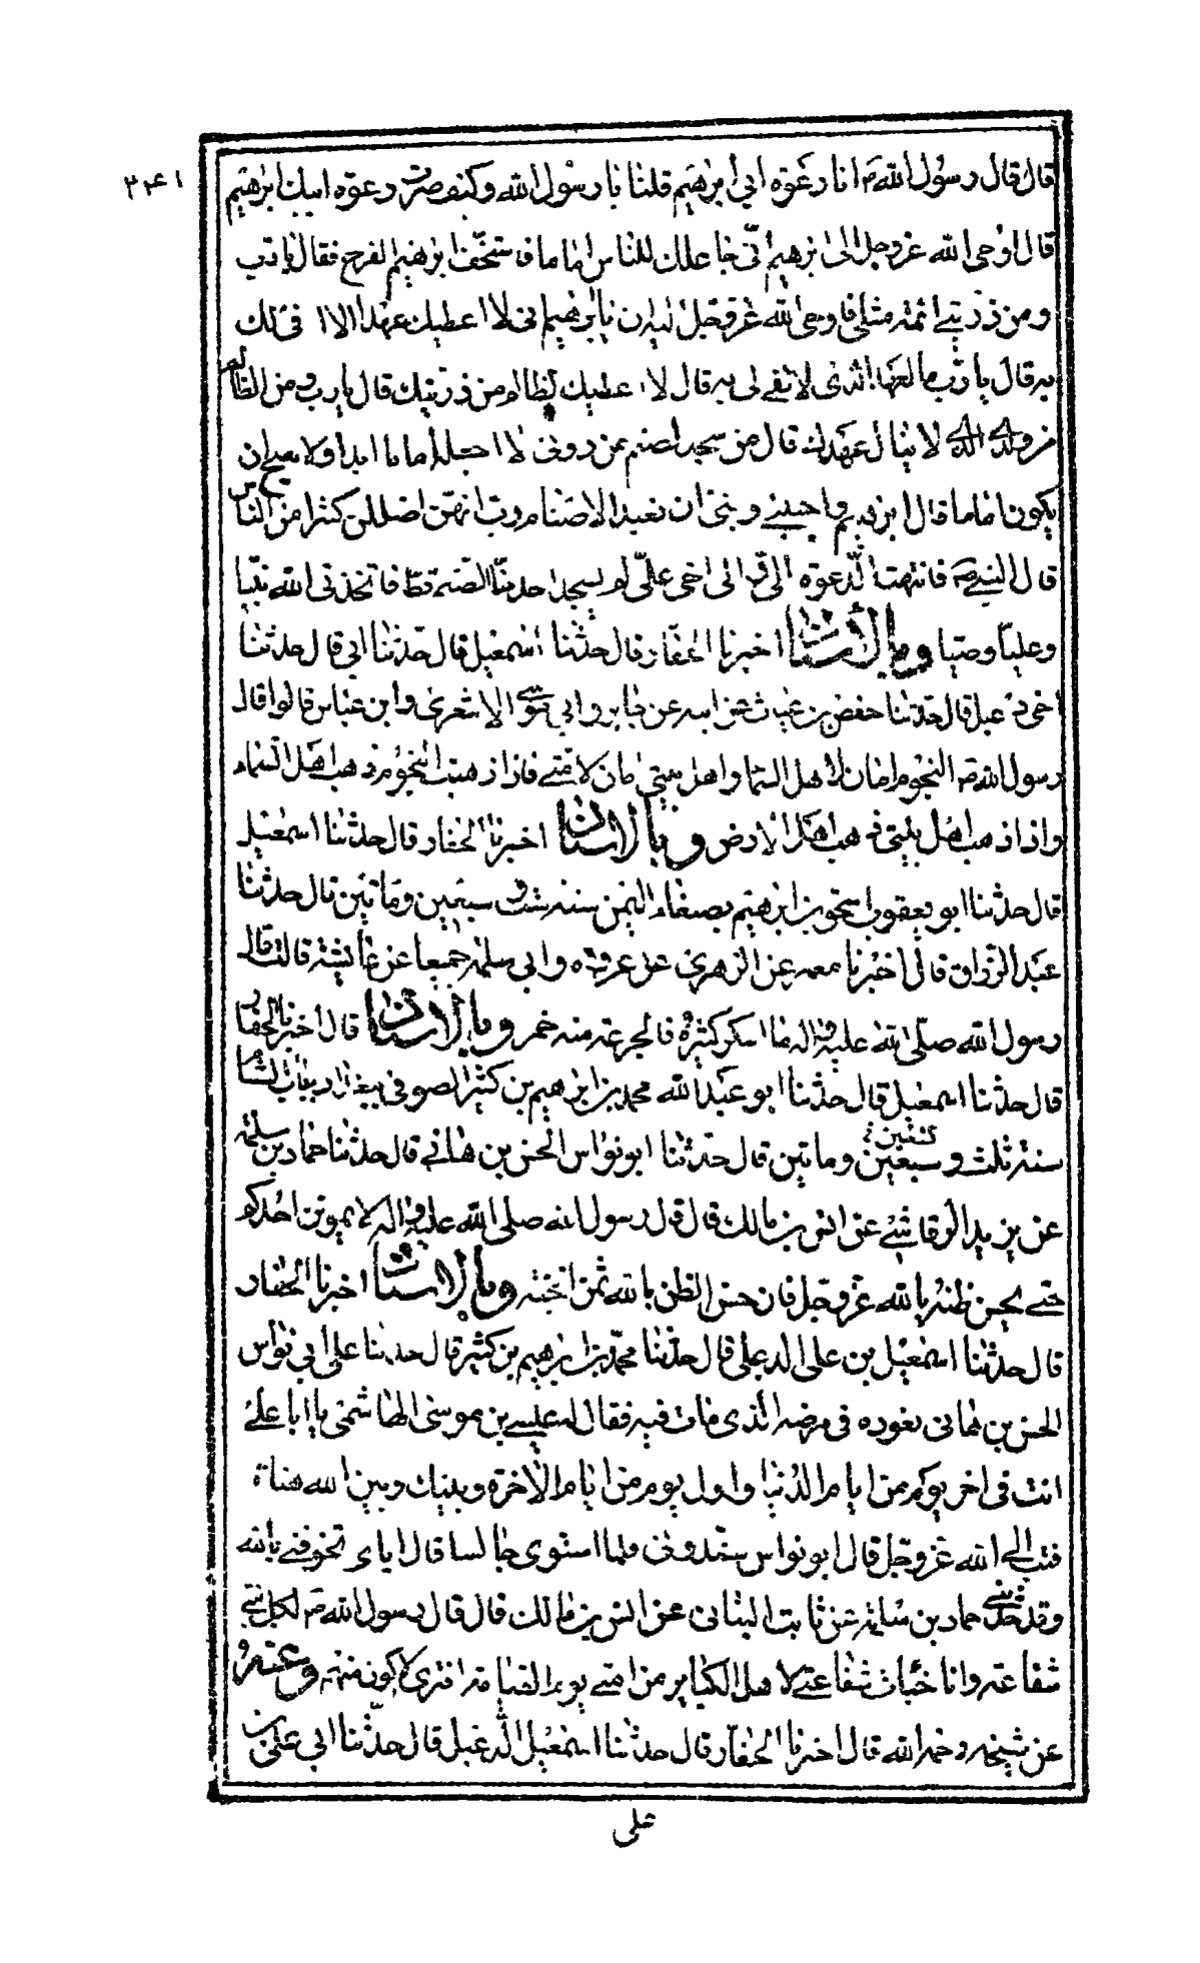 ۲۴۱
قال قال رسول الله ص انا دعوة ابي ابرهيم قلنا يا رسول الله وكيف صرت دعوة ابيك ابرهيم
قال اوحى الله عز وجل الى ابرهيم انى جاعلك للناس اماما فاستخف ابرهيم الفرح فقال يا رب
ومن ذريتى ائمة مثلى فاوحى الله عز وجل اليه ان يا ابرهيم انى لا اعطيك عهدا لا افى لك
به قال يا رب ما العهد الذى لا تفى لى به قال لا اعطيك لظالم من ذريتك قال يا رب ومن الظالم
من ولدى الذى لا ينال عهدك قال من سجد لصنم من دونى لا اجعله اماما ابدا ولا يصلح ان
يكون اماما قال ابرهيم واجنبنى وبنى ان نعبد الاصنام رب انهن اضللن كثيرا من الناس
قال النبى ص فانتهت الدعوة الى والى اخى على لم يسجد احد منا لصنم قط فاتخذنى الله نبيا
وعليا وصيا وبالاسناد اخبرنا الحفار قال حدثنا اسمعيل قال حدثنا ابى قال حدثنا
اخى دعبل قال حدثنا حفص بن غياث عن ابيه عن جابر وابى موسى الاشعرى وابن عباس قالوا قال
رسول الله ص النجوم امان لاهل السماء واهل بيتى امان لامتى فاذا ذهبت النجوم ذهب اهل السماء
واذا ذهب اهل بيتى ذهب اهل الارض وبالاسناد اخبرنا الحفار قال حدثنا اسمعيل
قال حدثنا ابو يعقوب اسحق بن ابرهيم بصنعاء اليمن سنة ست سبعين ومائتين قال حدثنا
عبد الرزاق قال اخبرنا معمر عن الزهرى عن عروة وابى سلمة جميعا عن عايشة قالت قال
رسول الله صلى الله عليه واله ما اسكر كثيره فالجرعة منه خمر وبالاسناد قال اخبرنا الحفار
قال حدثنا اسمعيل قال حدثنا ابو عبد الله محمد بن ابرهيم بن كثير الصوفى ببغداد بباب الشام
سنة ثلث وسبعين وماتين قال حدثنا ابو نواس الحسن بن هانى قال حدثنا حماد بن سلمة
عن يزيد الرقاشى عن انس بن مالك قال قال رسول الله صلى الله عليه واله لا يموتن احدكم
حتى يحسن ظنه بالله عز وجل فان حسن الظن بالله ثمن الجنة وبالاسناد اخبرنا الحفار
قال حدثنا اسمعيل بن على الدعبلى قال حدثنا محمد بن ابرهيم بن كثير قال حدثنا على ابى نواس
الحسن بن هانى نعوده فى مرضه الذى مات فيه فقال له عيسى بن موسى الهاشمى يا ابا على
انت فى اخر يوم من ايام الدنيا واول يوم من ايام الاخرة وبينك وبين الله هناة
فتب الى الله عز وجل قال ابو نواس سندونى فلما استوى جالسا قال اياى تخوفنى بالله
وقد حدثنى حماد بن سلمة عن ثابت البنانى عن انس بن مالك قال قال رسول الله ص لكل نبى
شفاعة وانا خبات شفاعتى لاهل الكباير من امتى يوم القيامة افترى لا اكون منهم وعنه
عن شيخه رحمه الله قال اخبرنا الحفار قال حدثنا اسمعيل الدعبل قال حدثنا ابى على بن
على